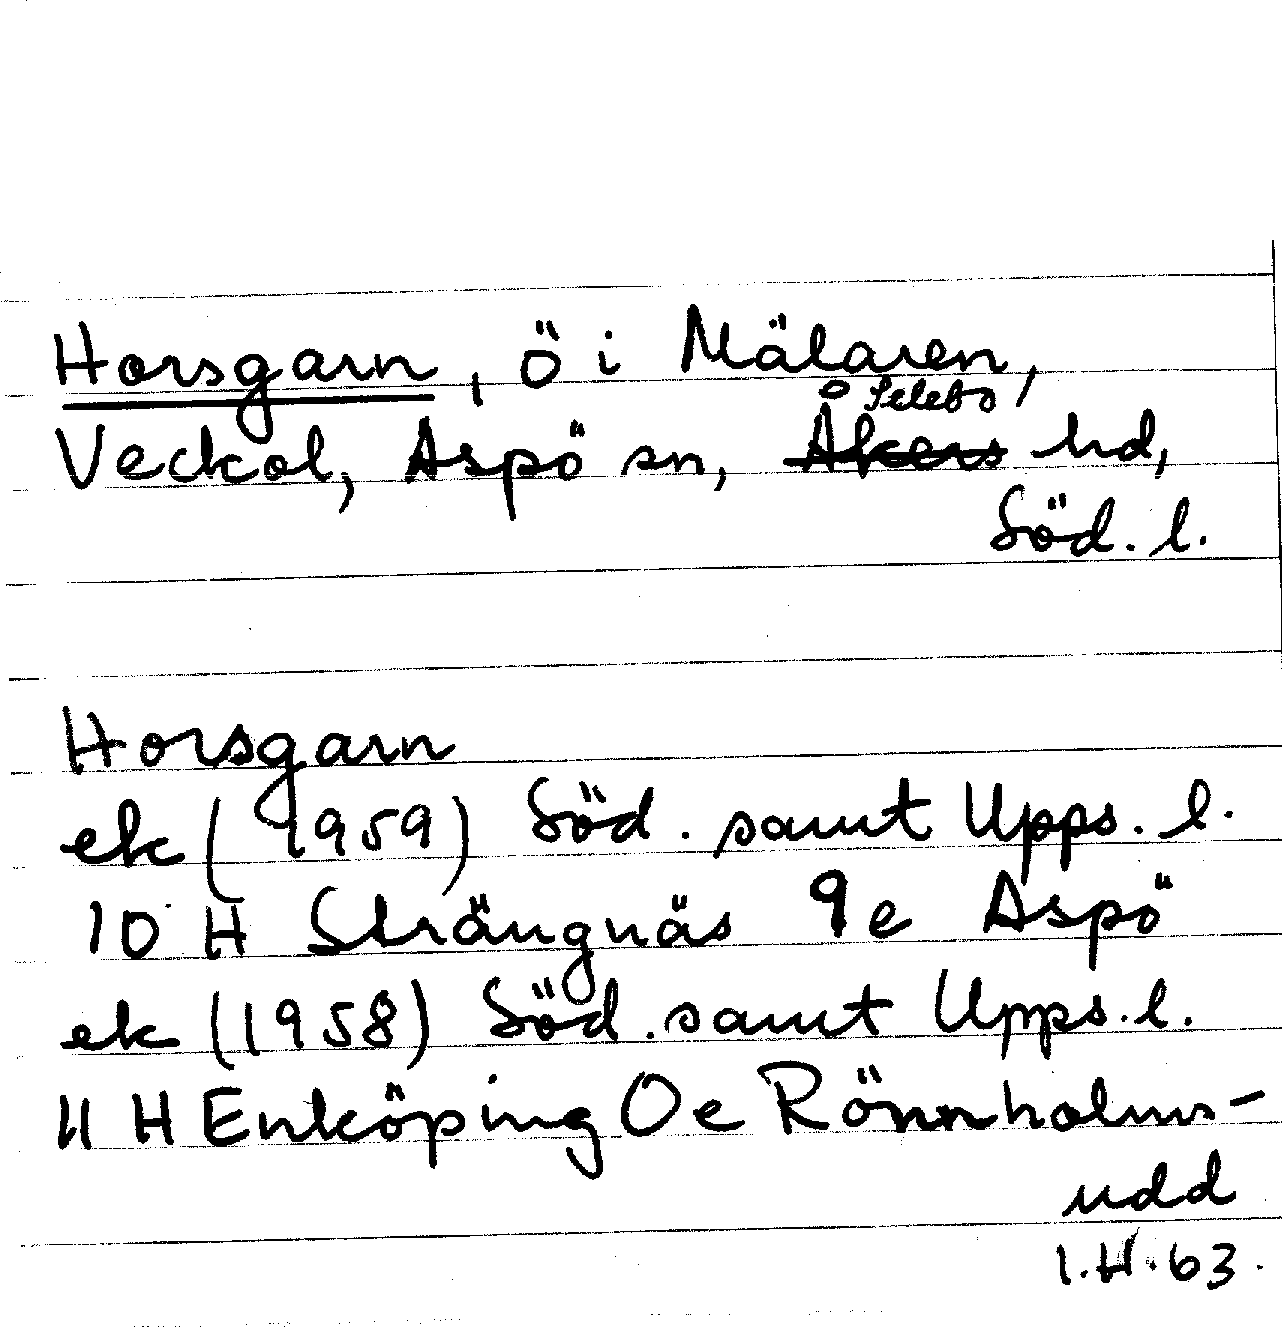 Horsgarn, ö i Mälaren,
Selebo
Veckol, Aspö sn, Åkers hd,
Söd. l.
Horsgarn
ek (1959) Söd. samt Upps. l.
10 H Strängnäs 9e Aspö
ek (1958) Söd. samt Upps. l.
11 H Enköping 0e Rönnholms-
udd
I.H. 63.